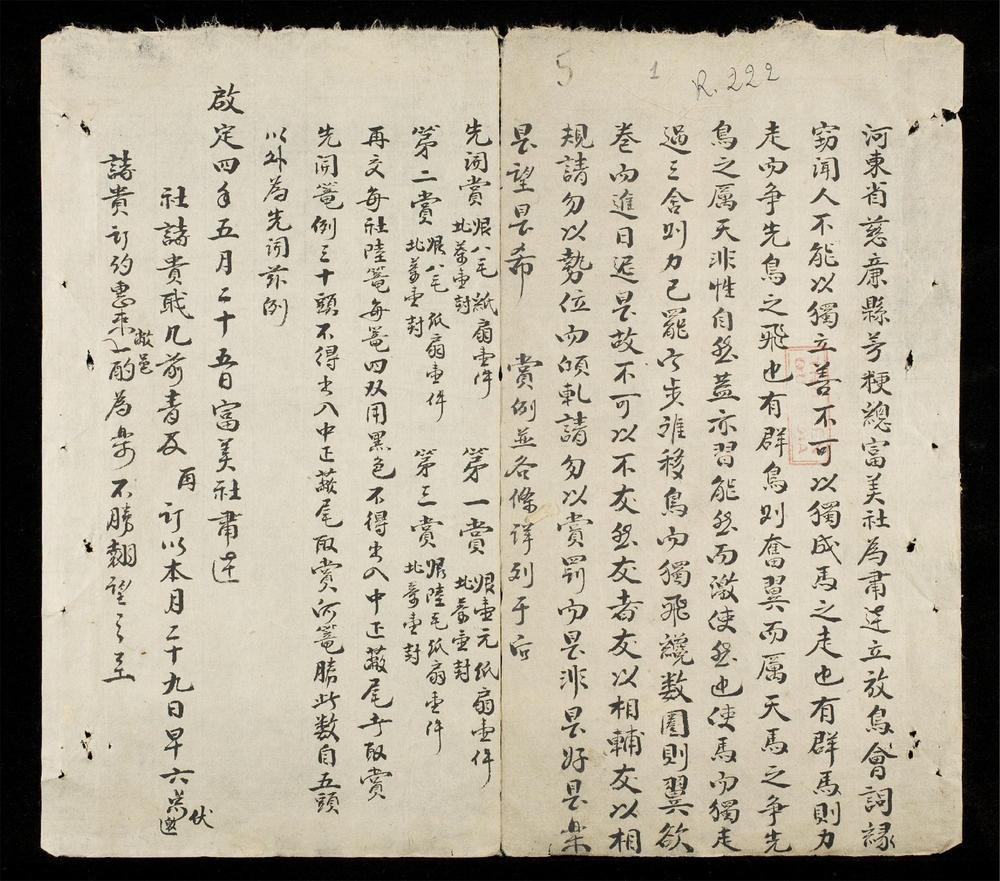 R.222
1
5
河東省慈廉縣芳粳總富美社為肅迋立放鳥會詞緣
窃闻人不能以獨立善不可以獨成馬之走也有群馬則力
走而争先鳥之飛也有群鳥則奮翼而厲天馬之争先
鳥之厲天非性自然蓋亦習能然而激使然也使馬而獨走
過三舍則力已罷而步誰移鳥而獨飛纔数圈則翼欲
卷而進日迟是故不可以不友然友者友以相輔友以相
規請勿以勢位而傾軋請勿以賞罰而是非是好是楽
是望是希 賞例並各條詳列于后
先詞賞 娘八毛紙扇壹件 北茶壹封 第一賞 娘壹元纸扇壹件 北茶壹封
第二賞 娘八毛纸扇壹件 北茶壹封 第三賞 娘陸毛纸扇壹件 北茶壹封
再交每社陸篭每篭四双用黑色不得出入中正蔽尾方取賞
先開篭例三十頭不得出入中正蔽尾取賞何篭勝此数自五頭
以外為先词茲例
啟定四年五月二十五日富美社肅迋
社諸貴戝几前青及 再订以本月二十九日早六点伏邀
諸貴訂约惠來敝邑一酌為楽不勝翹望之至